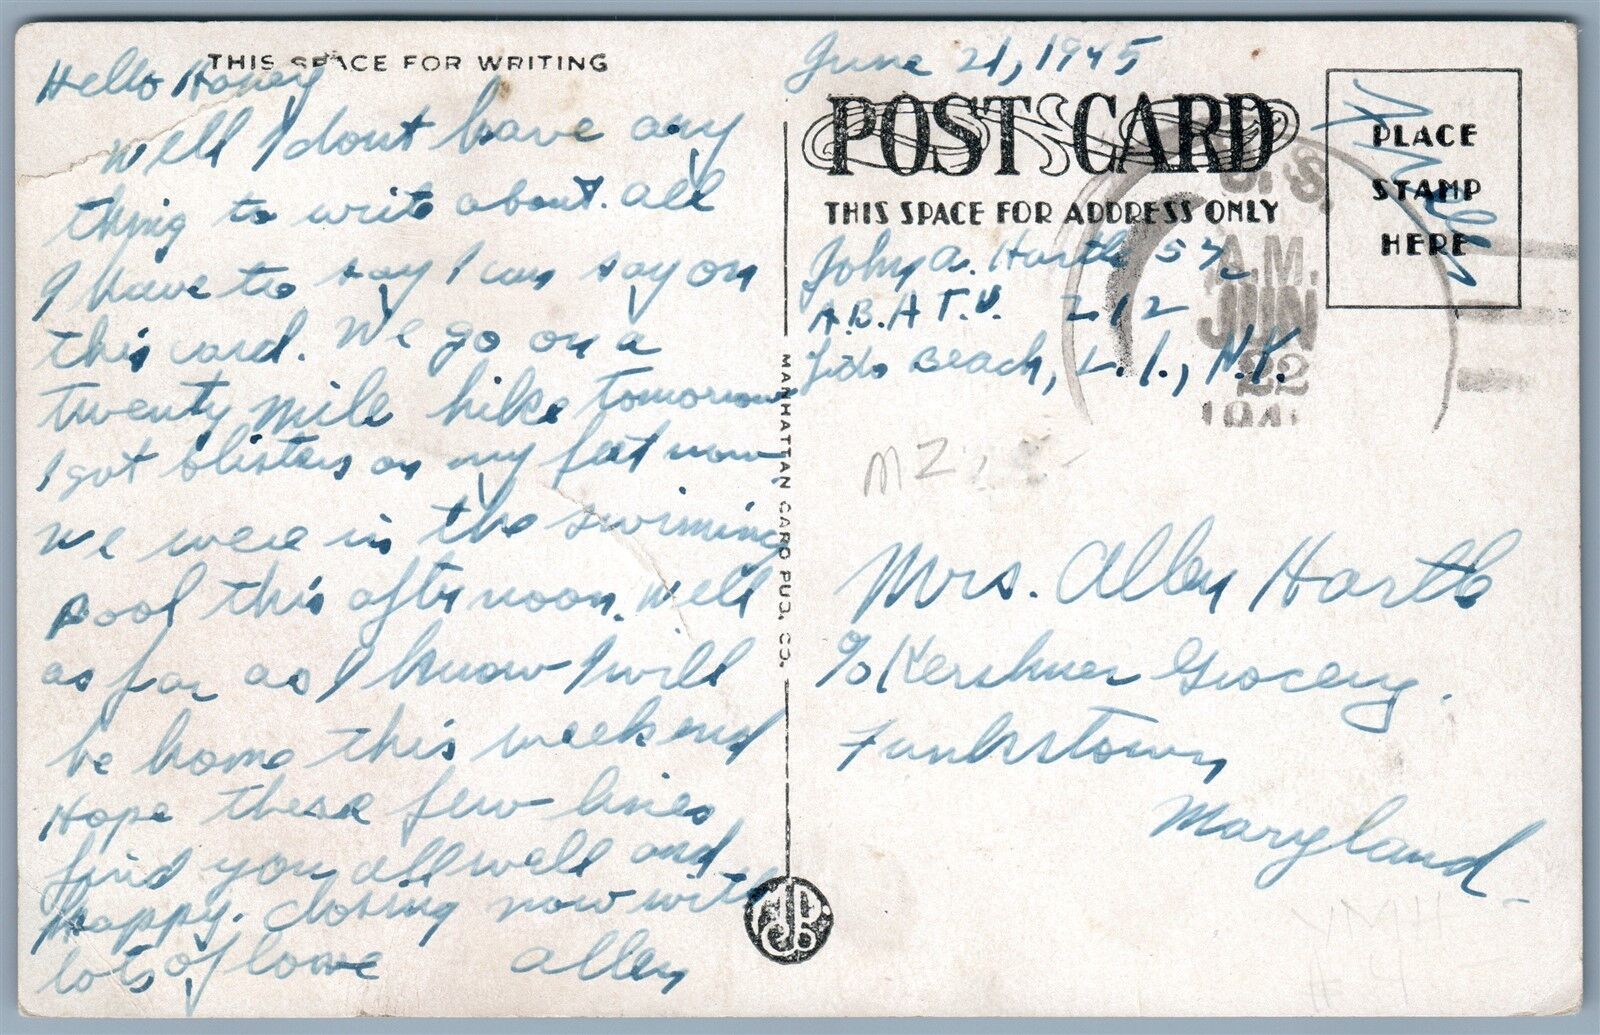 THIS SPACE FOR WRITING
Hello Honey
Well I dont have any
thing to write about. all
I have to say I can say on
this card. We go on a
twenty mile hike tomorrow
I got blisters on my feet now,
we were in the swiming
pool this afternoon. Well
as far as I know I will
be home this weekend
Hope these few lines
find you all well and
happy. closing now with
lots of love Allen
MANHATTAN CARD PUB. CO.
June 21, 1945
POST CARD
THIS SPACE FOR ADDRESS ONLY
PLACE
STAMP
HERE
Free
U.S.
A.M.
JUN
22
John A. Hartle
A.B.A.T.U. 212
Lido Beach, L.I., N.Y.
Mrs. Allen Hartle
c/o Kershner Grocery.
Funkstown
Maryland.